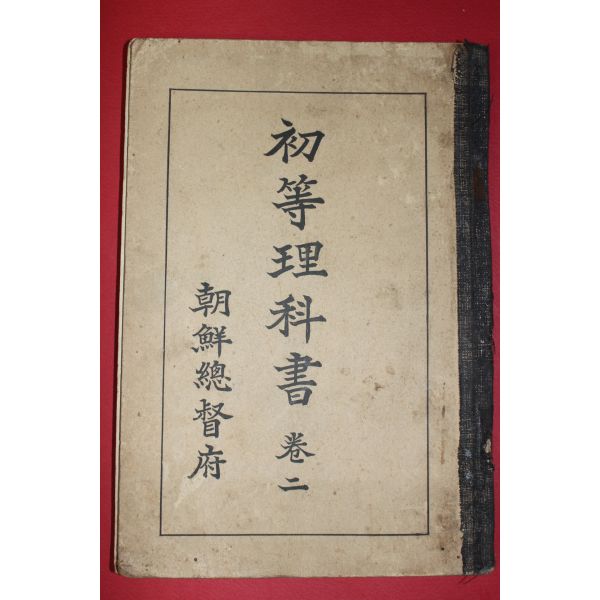 初等理科書 卷二
朝鮮總督府